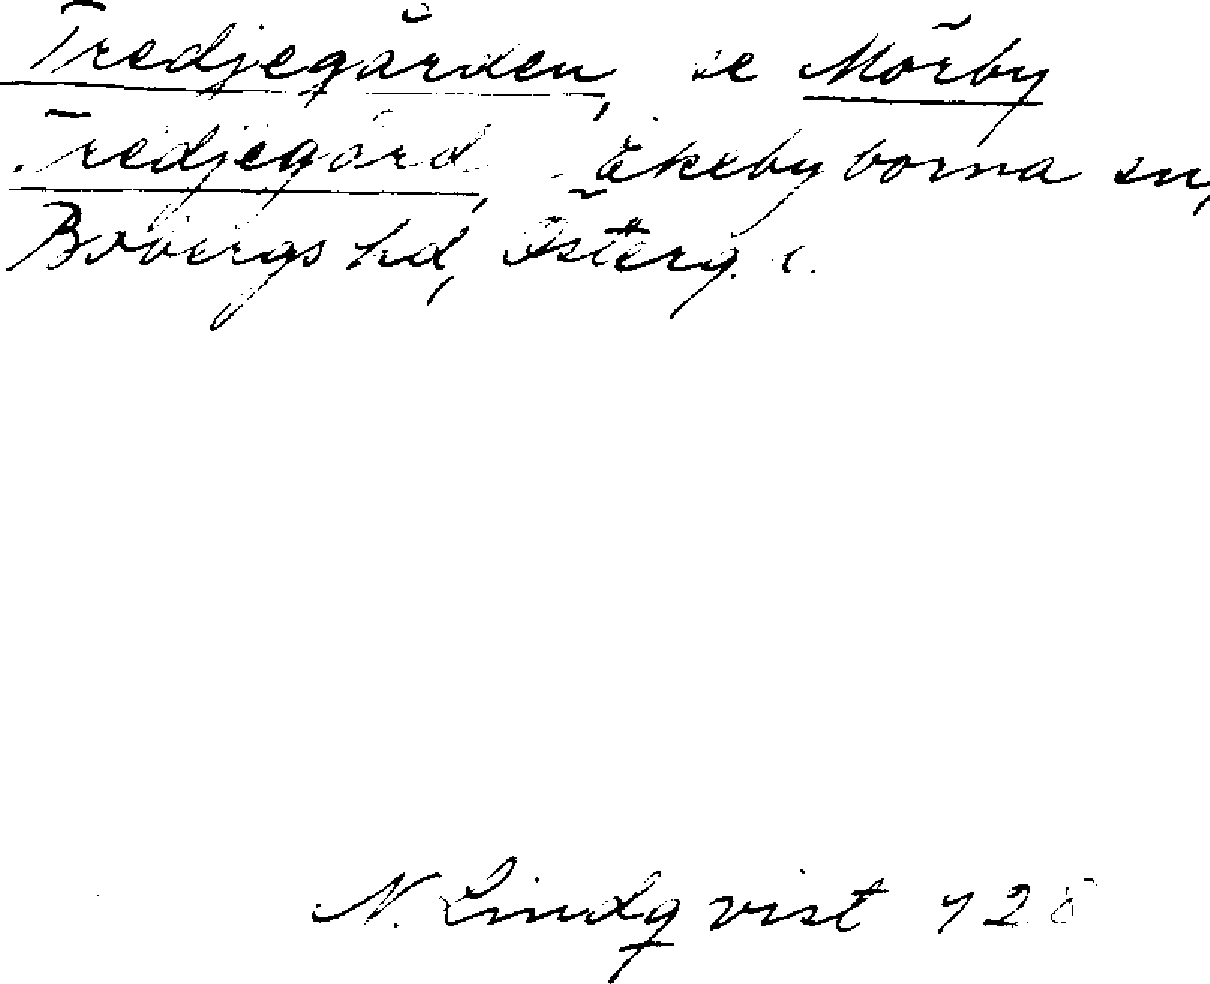 Tredjegården, se Mörby
Tredjegård, Ekebyborna sn,
Bobergs hd, Österg. l.
N. Lindqvist